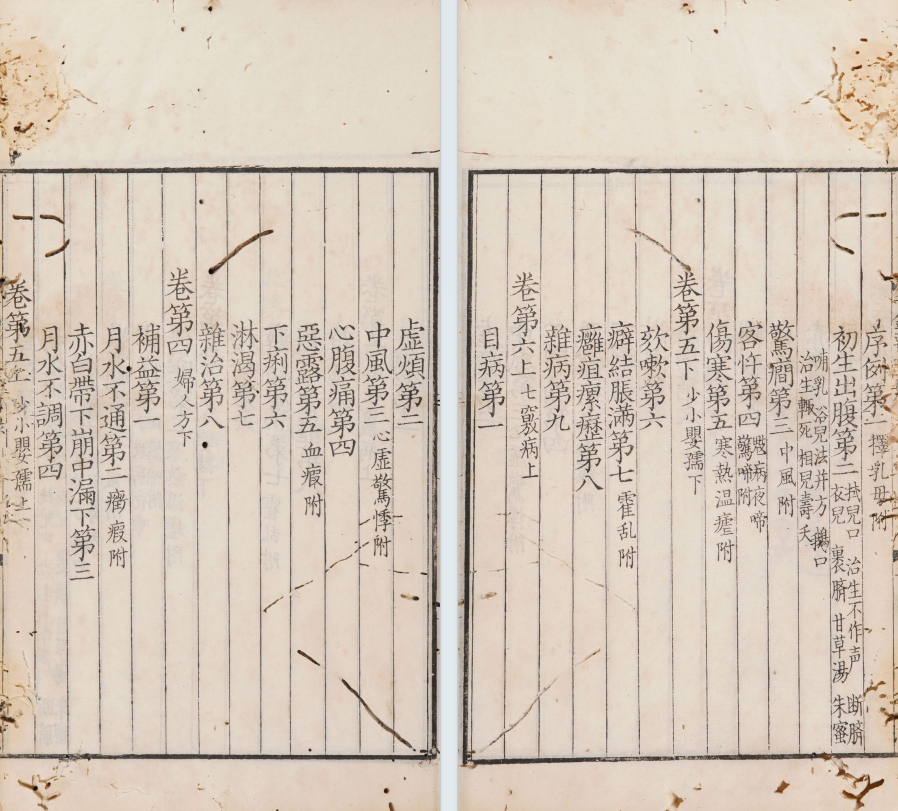 虛煩第二
中風第三 心虛驚悸附
心腹痛第四
惡露第五 血瘕附
下痢第六
淋渴第七
雜治第八
卷第四 婦人方下
補益第一
月水不通第二 癥瘕附
赤白帶下崩中漏下第三
月水不調第四
卷第五上 少小嬰孺上
序例第一 擇乳母附
初生出腹第二 拭兒口 治生不作声 断臍
衣兒 裹臍 甘草湯 朱蜜
哺乳 浴兒法并方 鵝口
治生輙死 相兒壽夭
驚癎第三 中風附
客忤第四 魃病夜啼
驚啼附
傷寒第五 寒熱温瘧附
卷第五下 少小嬰孺下
欬嗽第六
癖結脹滿第七 霍乱附
癰疽瘰癧第八
雜病第九
卷第六上 七竅病上
目病第一